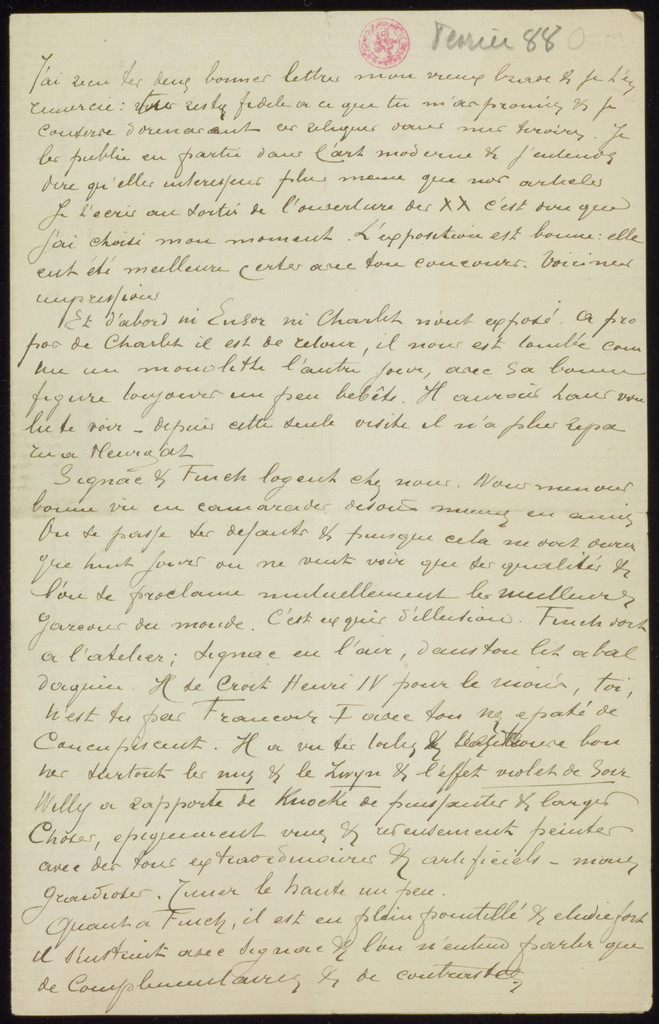 Fevrier 88
J'ai reçu tes deux bonnes lettres mon vieux brave & je t'en
remercie: reste fidele a ce que tu m'as promis & je
conserve dorenavant ces reliques dans mes tiroirs. Je
les publie en partie dans l'art moderne & j'entends
dire qu'elles interessent plus meme que nos articles
Je t'ecris au sortir de l'ouverture des XX c'est donc que
j'ai choisi mon moment. L'exposition est bonne: elle
eut été meilleure certes avec ton concours. Voici mes
impressions
Et d'abord ni Ensor ni Charlet n'ont exposé. A pro
pos de Charlet il est de retour, il nous est tombé com
me un monolithe l'autre jour, avec sa bonne
figure toujours un peu bebête. Il aurait tant vou
lu te voir – depuis cette seule visite il n'a plus repa
ru a
Signac & Finch logent chez nous. Nous menons
bonne vie en camarades disons mieux en amis
On se passe ses defauts & puisque cela ne doit durer
que huit jours on ne veut voir que ses qualités &
l'on se proclame mutuellement les meilleurs
garçons du monde. C'est exquis d'illusion. Finch dort
a l'atelier; Signac en l'air, dans ton lit a bal
daquin. Il se croit Henri IV pour le moins, toi,
n'est tu pas Francois I avec ton nez epaté de
Concupiscent. Il a vu tes toiles & bon
nes surtout les nus & le Zwyn & l'effet violet de soir
Willy a rapporté de Knocke de puissantes & larges
Choses, epiquement vues & peintes
avec des tons extraordinaires & artificiels – mais
grandioses. le hante un peu.
Quant a Finch, il est en plein pointillé & etudie fort
il s'instruit avec Signac & l'on n'entend parler que
de Complementaires & de contrastes